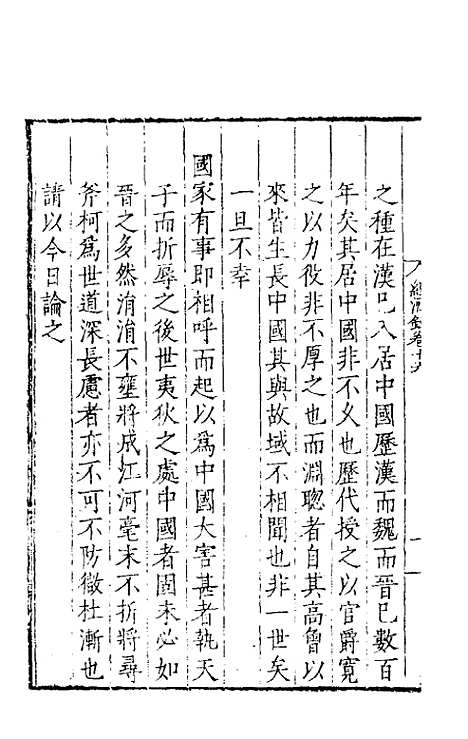 經濟錄卷十六
之種在漢已入居中國歷漢而魏而晉已數百
年矣其居中國非不义也歷代授之以官爵寛
之以力役非不厚之也而淵聰者自其高曾以
來皆生長中國其與故域不相聞也非一世矣
一旦不幸
國家有事即相呼而起以爲中國大害甚者執天
子而折辱之後世夷狄之處中國者固未必如
晉之多然涓涓不壅將成江河毫末不折將尋
斧柯爲世道深長慮者亦不可不防微杜漸也
請以今日論之